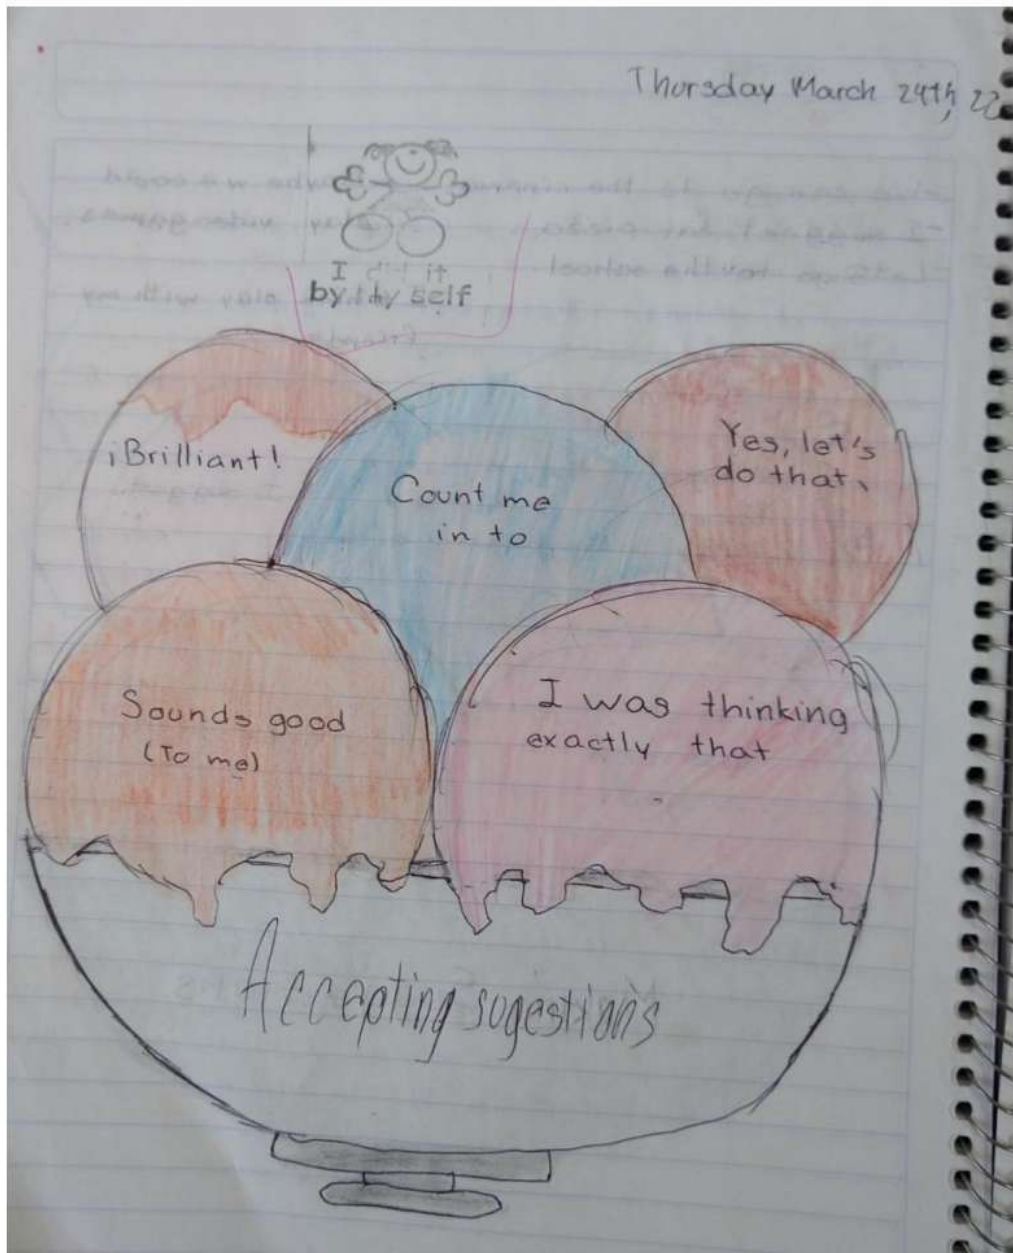 Thursday March 24th, 22
I did it
by my self
¡Brilliant!
Count me
in to
Yes, let's
do that.
Sounds good
(To me)
I was thinking
exactly that
Accepting sugestions